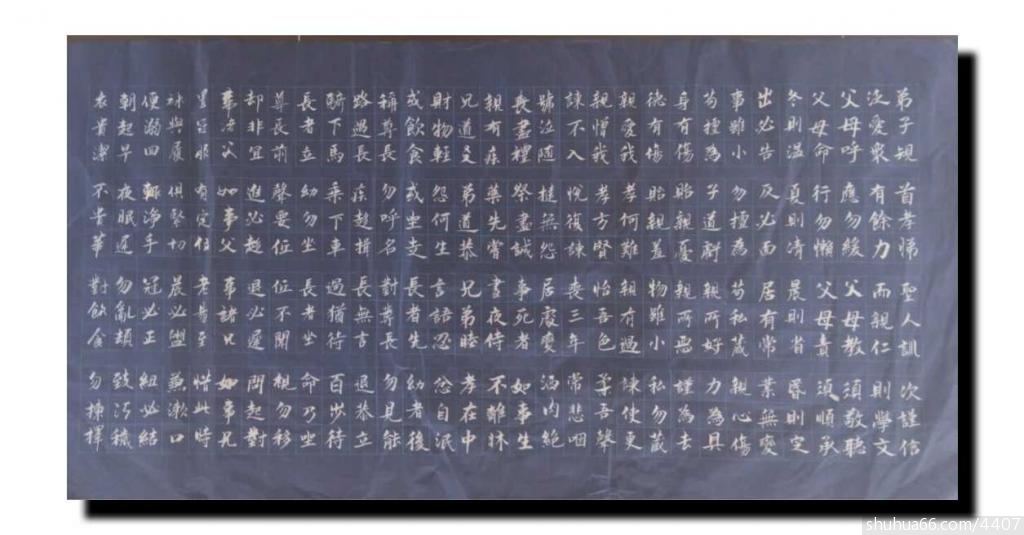 弟子規首孝悌聖人訓次謹信
泛愛衆有餘力而親仁則學文
父母呼應勿緩父母教須敬聽
父母命行勿懶父母責須順承
冬則溫夏則凊晨則省昏則定
出必告反必面居有常業無變
事雖小勿擅為苟私藏親心傷
苟擅為子道虧親所好力為具
身有傷貽親憂親所惡謹為去
德有傷貽親羞物雖小私勿藏
親愛我孝何難親有過諫使更
親憎我孝方賢怡吾色柔吾聲
諫不入悅復諫喪三年常悲咽
號泣隨撻無怨居處變酒肉絕
喪盡禮祭盡誠事死者如事生
親有疾藥先嘗晝夜侍不離牀
兄道友弟道恭兄弟睦孝在中
財物輕怨何生言語忍忿自泯
或飲食或坐走長者先幼者後
稱尊長勿呼名對尊長勿見能
路遇長疾趨揖長無言退恭立
騎下馬乘下車過猶待百步待
長者立幼勿坐長者坐命乃坐
尊長前聲要低低不聞視勿移
却非宜進必趨退必遲問起對
事諸父如事父事諸兄如事兄
冠服有定位老至惜此時
與履俱緊切晨必盥兼漱口
便溺回輒淨手冠必正紐必結
朝起早夜眠遲勿亂頓致污穢
衣貴潔不貴華對飲食勿揀擇
shuhua66.com/4407